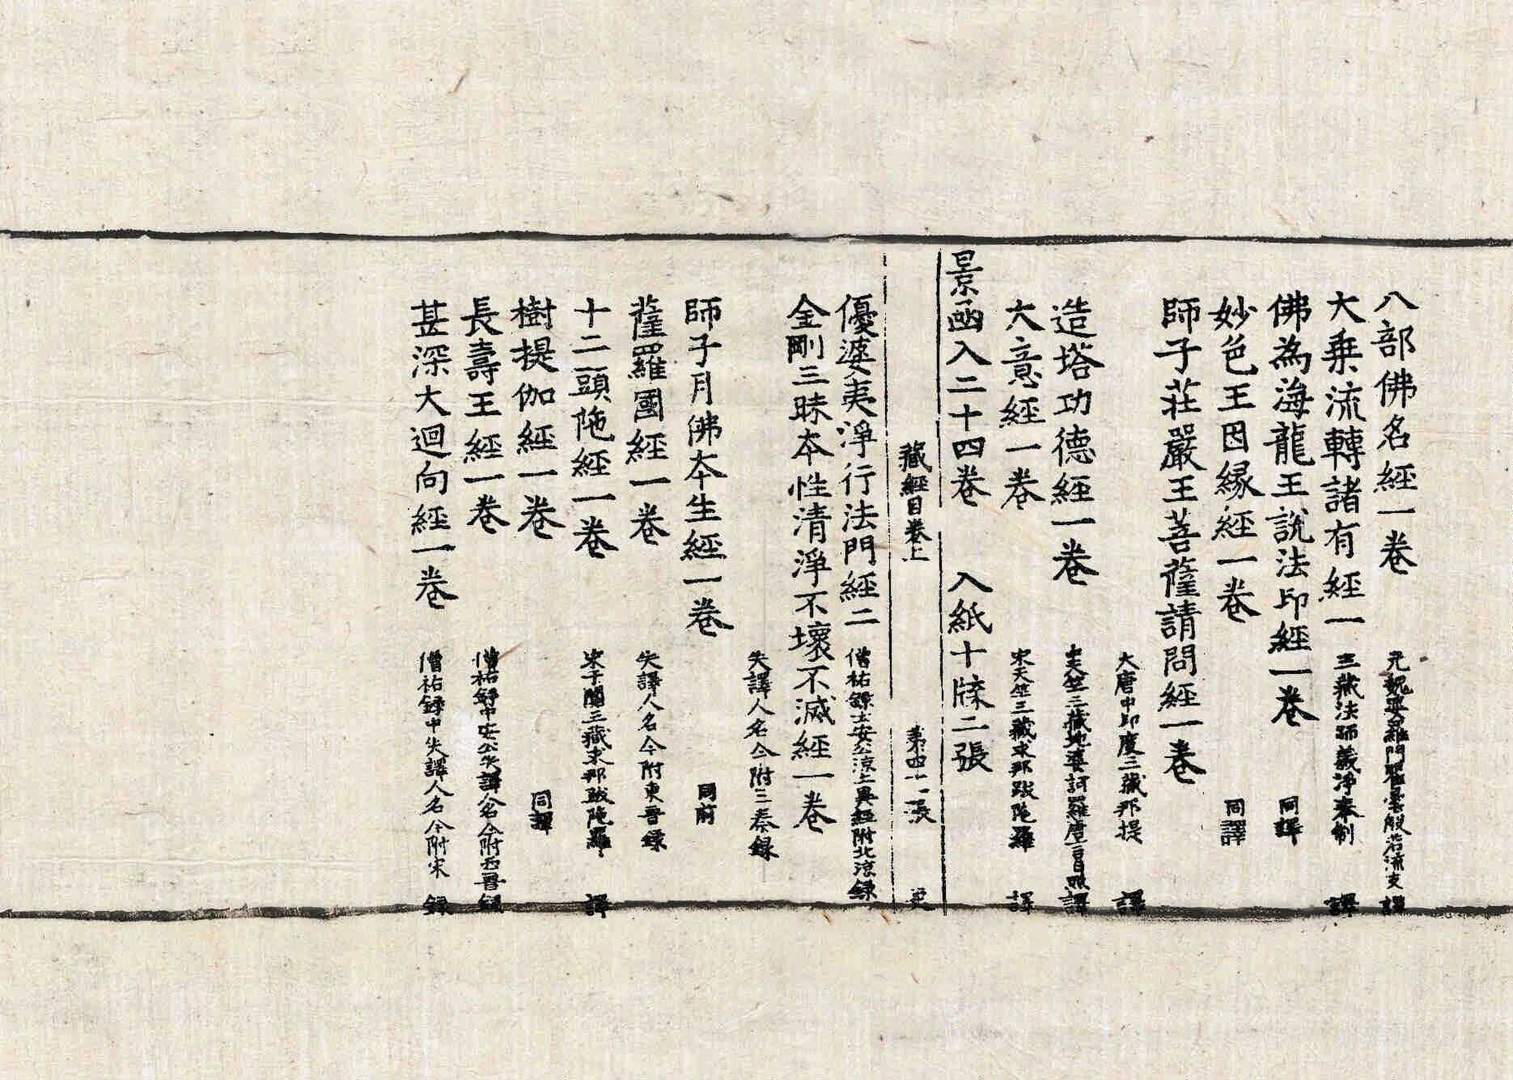 八部佛名經一卷 元魏婆羅門瞿曇般若流支 譯
大乘流轉諸有經一 三藏法師義淨奉制 譯
佛為海龍王說法印經一卷 同譯
妙色王因緣經一卷 同譯
師子莊嚴王菩薩請問經一卷
大唐中印度三藏那提 譯
造塔功德經一卷 中天竺三藏地婆訶羅唐言日照譯
大意經一卷 宋天竺三藏求那跋陀羅 譯
景函入二十四卷 入紙十牒二張
藏經目卷上 第四十一張
優婆夷淨行法門經二 僧祐錄云安公涼土異經附北涼錄
金剛三昧本性清淨不壞不滅經一卷
失譯人名今附三秦録
師子月佛本生經一卷 同前
薩羅國經一卷 失譯人名今附東晉録
十二頭陁經一卷 宋于闐三藏求那跋陁羅 譯
樹提伽經一卷 同譯
長壽王經一卷 僧祐錄中安公失譯人名今附西晉錄
甚深大迴向經一卷 僧祐錄中失譯人名今附宋 録